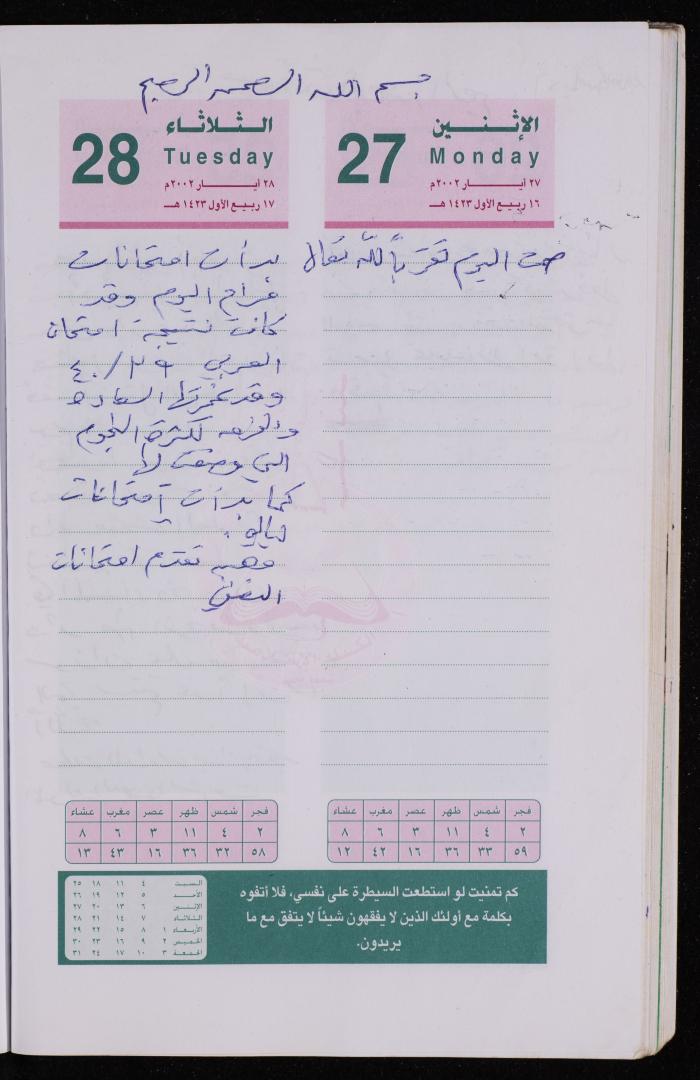 بسم الله الرحمن الرحيم
الإثنين
Monday
27
٢٧ أيار ٢٠٠٢م
١٦ ربيع الأول ١٤٢٣ هـ
صمت اليوم تقرباً لله تعالى
الثلاثاء
Tuesday
28
٢٨ أيار ٢٠٠٢م
١٧ ربيع الأول ١٤٢٣ هـ
بدأت امتحانات
مرام اليوم وقد
كانت نتيجة امتحان
العربي ٣٩/٤٠
وقد غمرتها السعادة
والفرحه لكثرة النجوم
التي وضعت لها
كما بدأت امتحانات
تقدم امتحانات
فجر شمس ظهر عصر مغرب عشاء
٢ ٤ ١١ ٣ ٦ ٨
٥٩ ٣٣ ٣٦ ١٦ ٤٢ ١٢
فجر شمس ظهر عصر مغرب عشاء
٢ ٤ ١١ ٣ ٦ ٨
٥٨ ٣٢ ٣٦ ١٦ ٤٣ ١٣
كم تمنيت لو استطعت السيطرة على نفسي، فلا أتفوه
بكلمة مع أولئك الذين لا يفقهون شيئاً لا يتفق مع ما
يريدون.
السبت ٤ ١١ ١٨ ٢٥
الأحد ٥ ١٢ ١٩ ٢٦
الإثنين ٦ ١٣ ٢٠ ٢٧
الثلاثاء ٧ ١٤ ٢١ ٢٨
الأربعاء ١ ٨ ١٥ ٢٢ ٢٩
الخميس ٢ ٩ ١٦ ٢٣ ٣٠
الجمعة ٣ ١٠ ١٧ ٢٤ ٣١